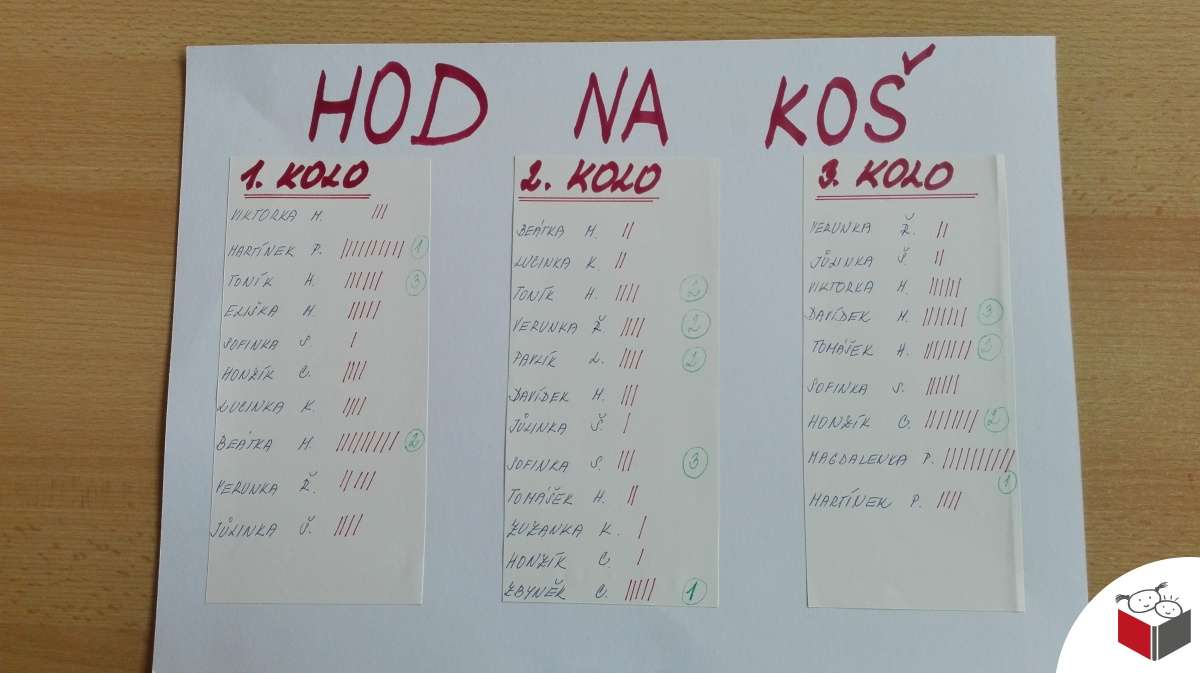 HOD NA KOŠ
1. KOLO
VIKTORKA H. |||
MARTÍNEK P. |||||||||| 1
TONÍK H. |||||| 3
ELIŠKA H. |||||
SOFINKA S. |
HONZÍK C. ||||
LUCINKA K. ||||
BEÁTKA H. ||||||||| 2
VERUNKA Ř. |||||
JŮLINKA Š. ||||
2. KOLO
BEÁTKA H. ||
LUCINKA K. ||
TONÍK H. |||| 2
VERUNKA Ř. |||| 2
PAVLÍK L. |||| 2
DAVÍDEK H. |||
JŮLINKA Š. |
SOFINKA S. ||| 3
TOMÁŠEK H. ||
ZUZANKA K. |
HONZÍK C. |
ZBYNĚK C. ||||| 1
3. KOLO
VERUNKA Ř. ||
JŮLINKA Š. ||
VIKTORKA H. |||||
DAVÍDEK H. ||||||| 3
TOMÁŠEK H. |||||||| 2
SOFINKA S. |||||
HONZÍK C. |||||||| 2
MAGDALENKA P. ||||||||||
1
MARTÍNEK P. ||||